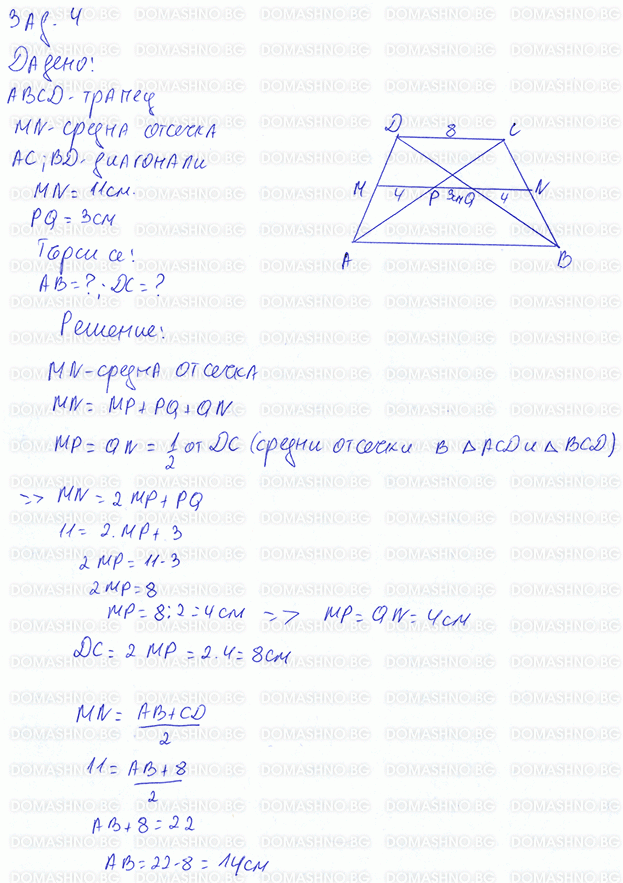 Зад. 4
Дадено:
ABCD - трапец
MN - средна отсечка
AC; BD - диагонали
MN = 11см.
PQ = 3см
Търси се:
AB = ?; DC = ?
D 8 C
M 4 P 3см Q 4 N
A B
Решение:
MN - средна отсечка
MN = MP + PQ + QN
MP = QN = 1/2 от DC (средни отсечки в △ACD и △BCD)
=> MN = 2MP + PQ
11 = 2.MP + 3
2MP = 11-3
2MP = 8
MP = 8:2 = 4см => MP = QN = 4см
DC = 2MP = 2.4 = 8см
MN = AB+CD/2
11 = AB+8/2
AB+8 = 22
AB = 22-8 = 14см
DOMASHNO.BG